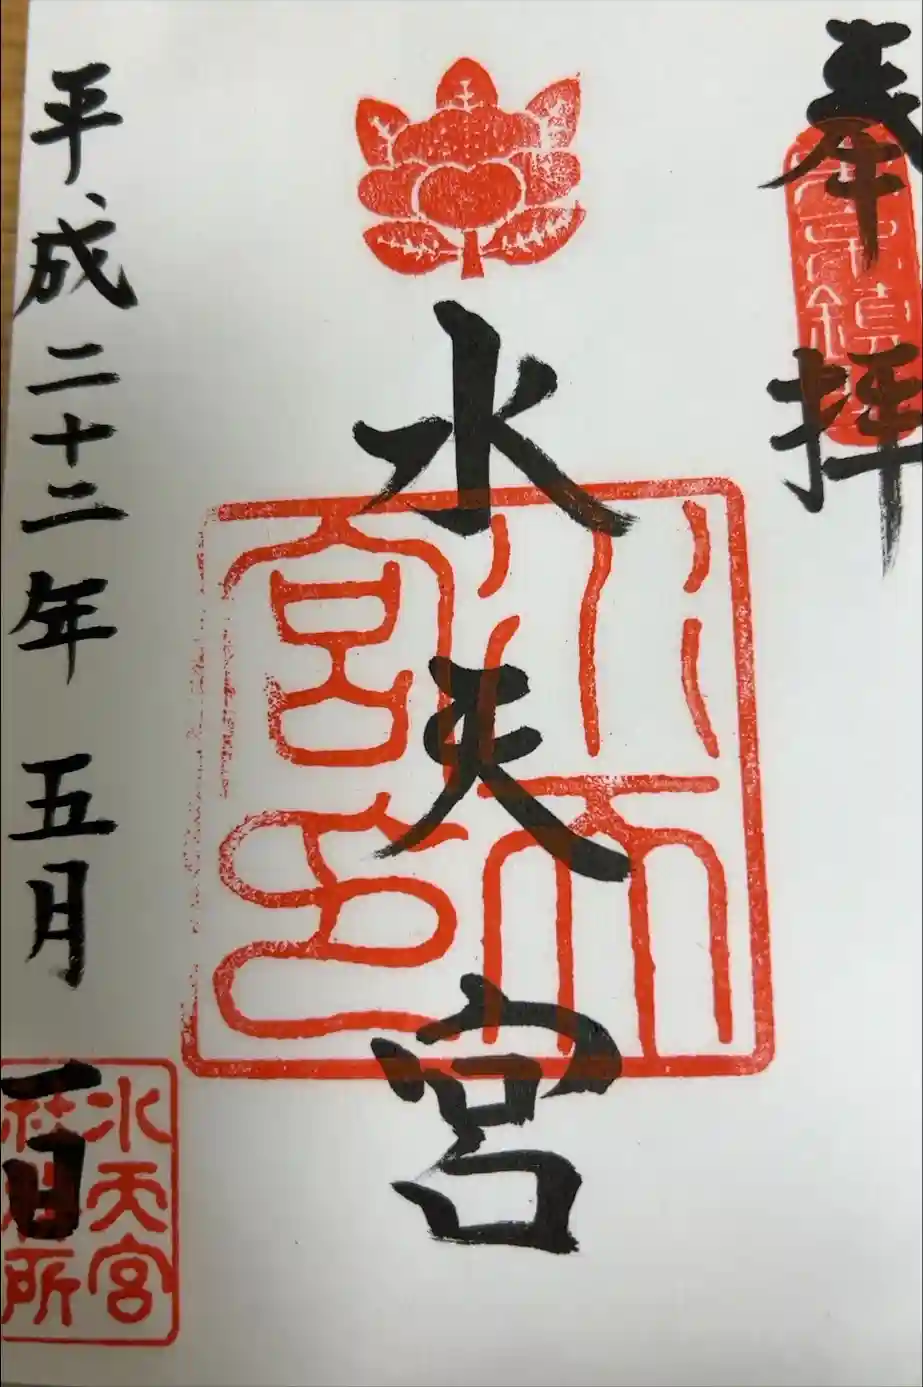 奉拝
水天宮
水天
宮印
平成二十二年五月一日
水天宮
社務所